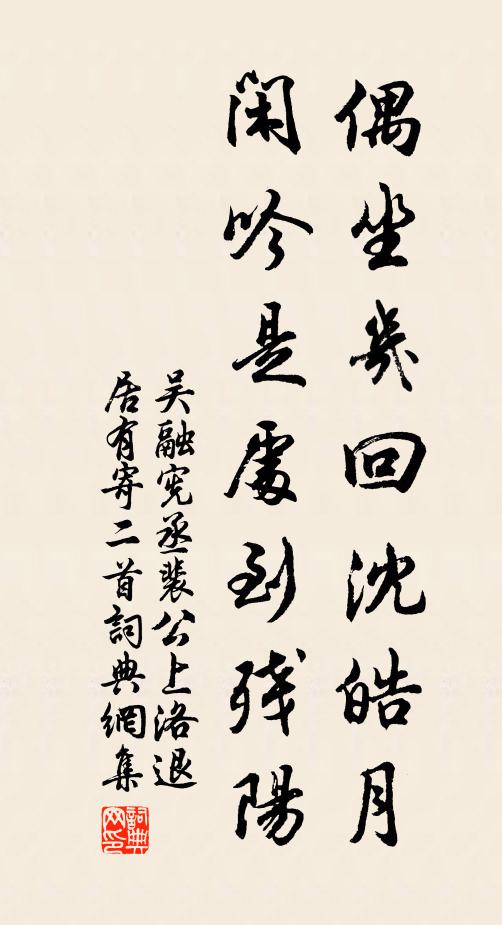 偶坐幾回沈皓月
閑吟是處到殘陽
吴融宪丞裴公上洛退
居有寄二首詞典網集
詞典
网印